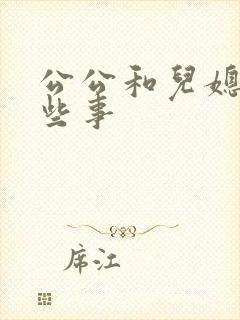 公公和兒媳
些事
席江